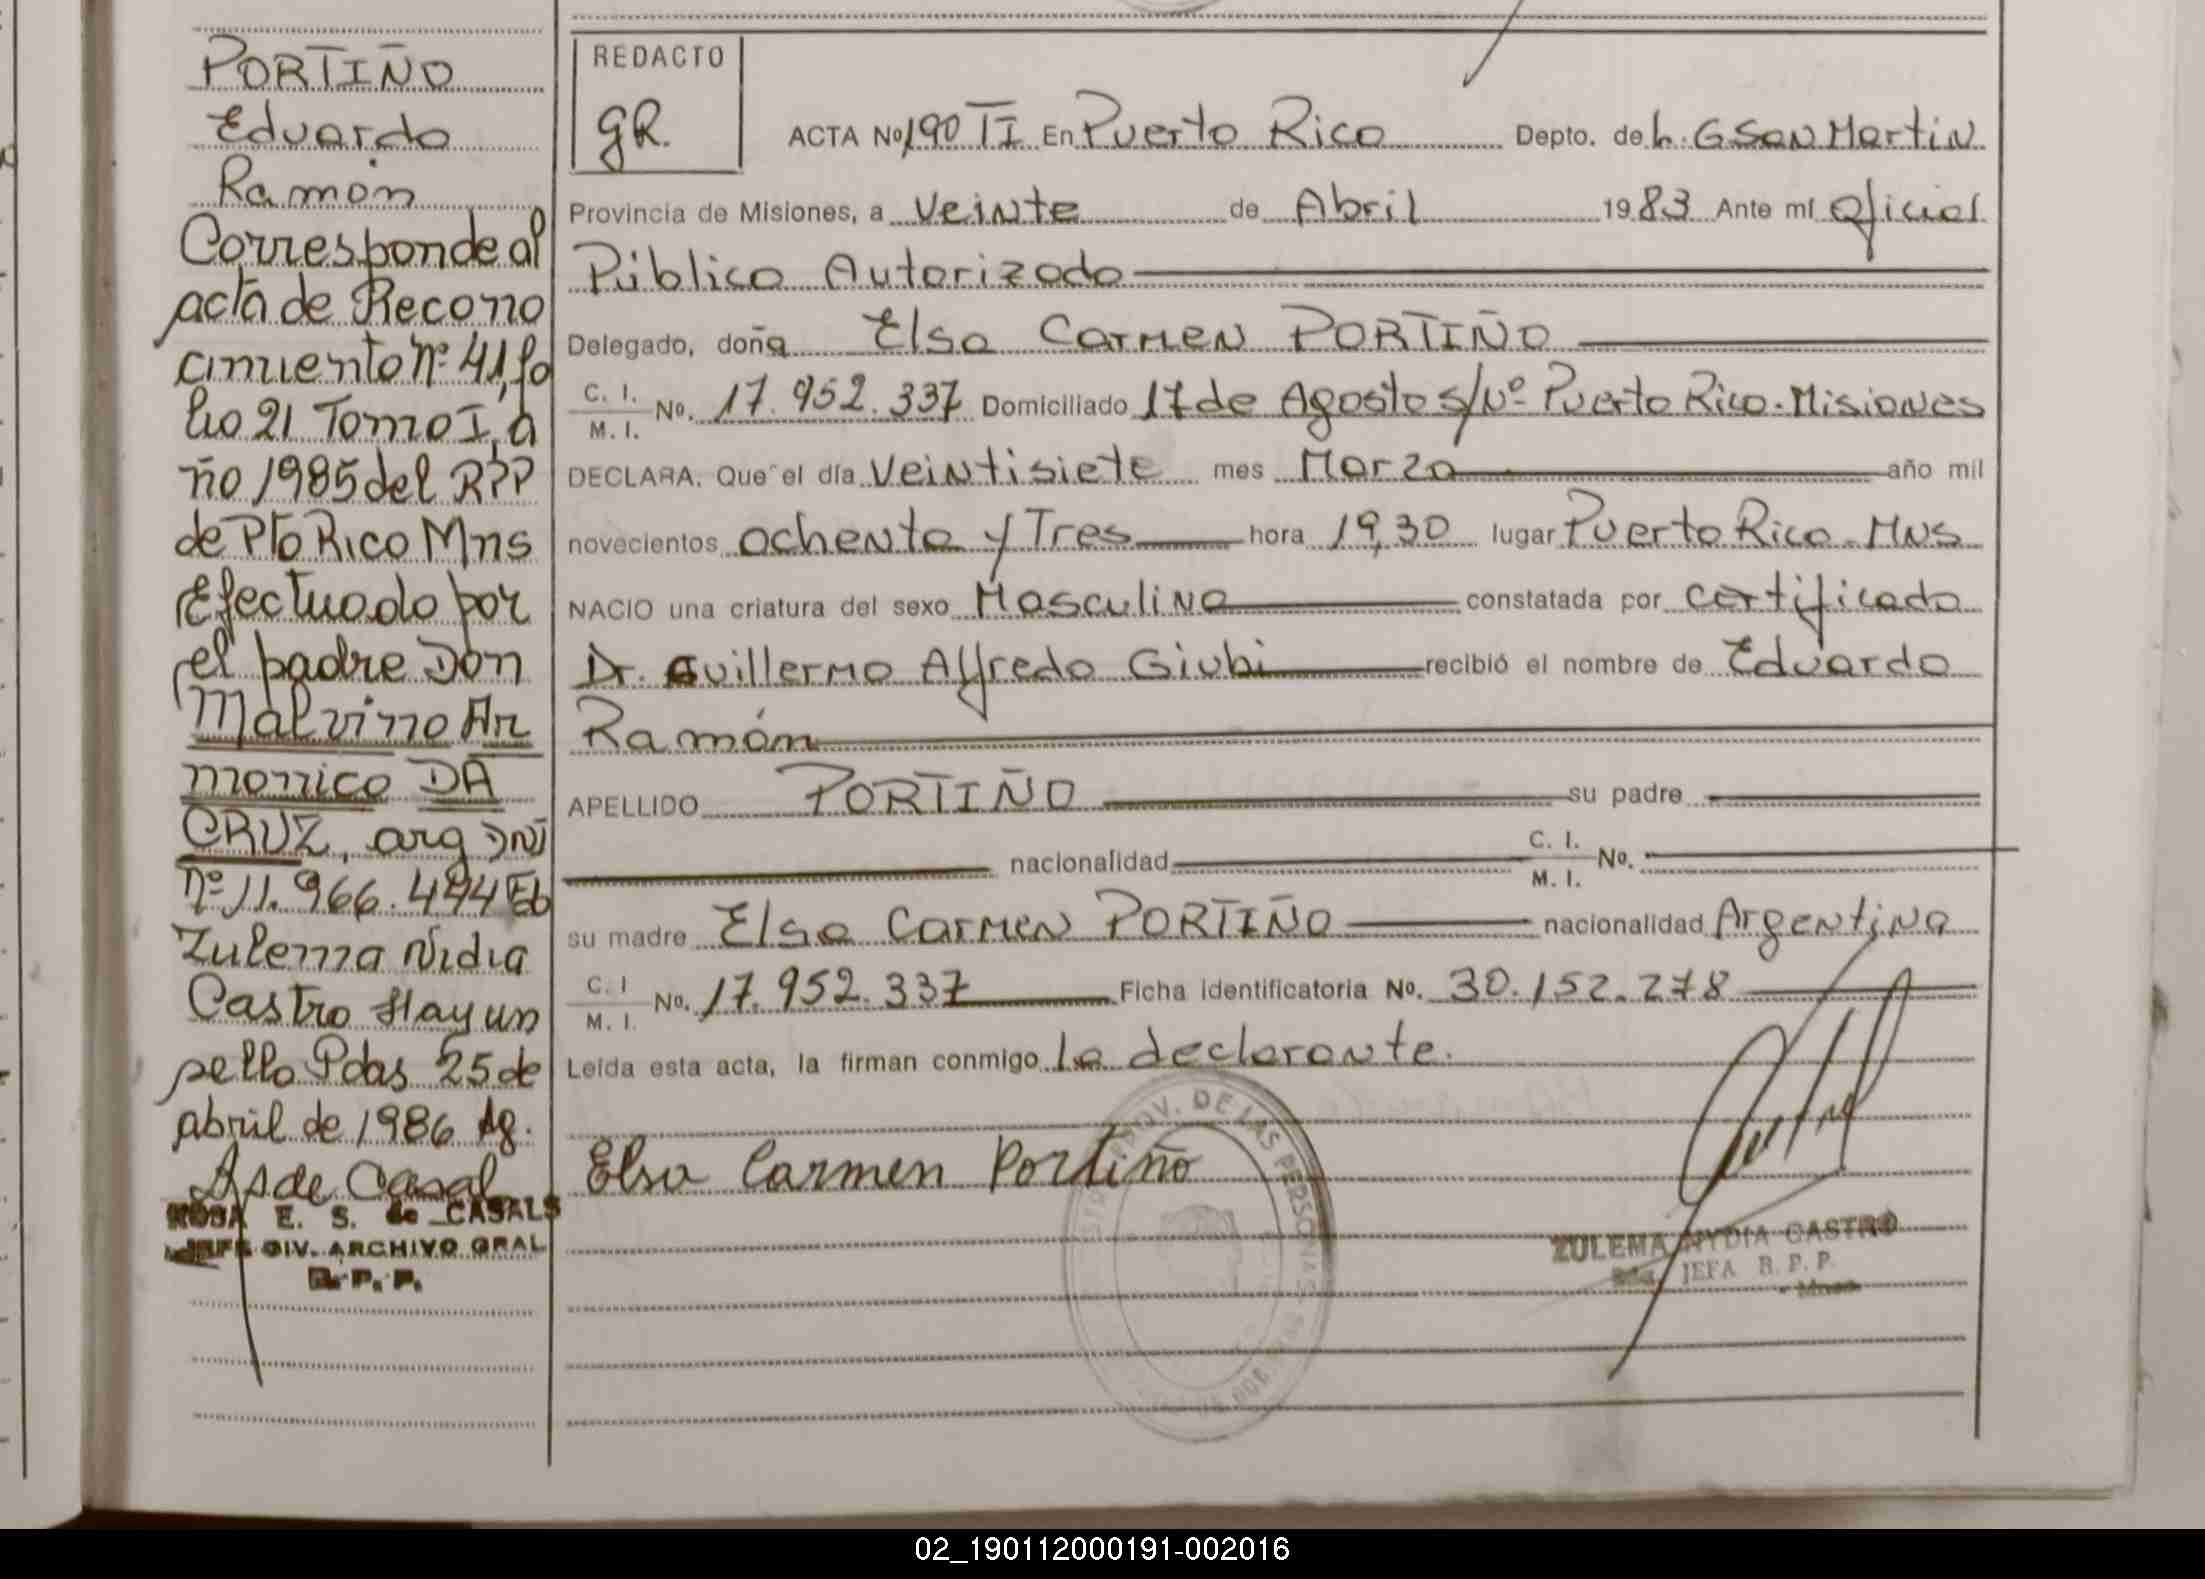 PORTIÑO
Eduardo
Ramón
Corresponde al
acta de Recono
cimiento Nº 41, fo
lio 21 Tomo I, a
ño 1985 del RPP
de Pto Rico Mns
Efectuado por
el padre Don
Malvino Ar
monico DA
CRUZ, arg DNI
Nº 11.966.494 Eb
Zulema Nidia
Castro Hay un
sello Pdas 25 de
abril de 1986 Ag.
ROSA E. S. de CASALS
JEFE DIV. ARCHIVO GRAL
R. P. P.
REDACTO
gR.
ACTA Nº 190 TI En Puerto Rico Depto. de L. G San Martin
Provincia de Misiones, a veinte de Abril 1983 Ante mí Oficial
Público Autorizado
Delegado, doña Elsa Carmen PORTIÑO
C. I.
M. I. No. 17.952.337 Domiciliado 17 de Agosto s/Nº Puerto Rico - Misiones
DECLARA. Que el día veintisiete mes Marzo año mil
novecientos ochenta y Tres hora 19,30 lugar Puerto Rico - Mns
NACIO una criatura del sexo Masculino constatada por certificado
Dr. Guillermo Alfredo Giubi recibió el nombre de Eduardo
Ramón
APELLIDO PORTIÑO su padre
nacionalidad C. I.
M. I. No.
su madre Elsa Carmen PORTIÑO nacionalidad Argentina
C. I
M. I. No. 17.952.337 Ficha identificatoria No. 30.152.278
Leída esta acta, la firman conmigo la declarante.
Elsa Carmen Portiño
PROV. DE LAS PERSONAS
ZULEMA NYDIA CASTRO
JEFA R. P. P.
02_190112000191-002016